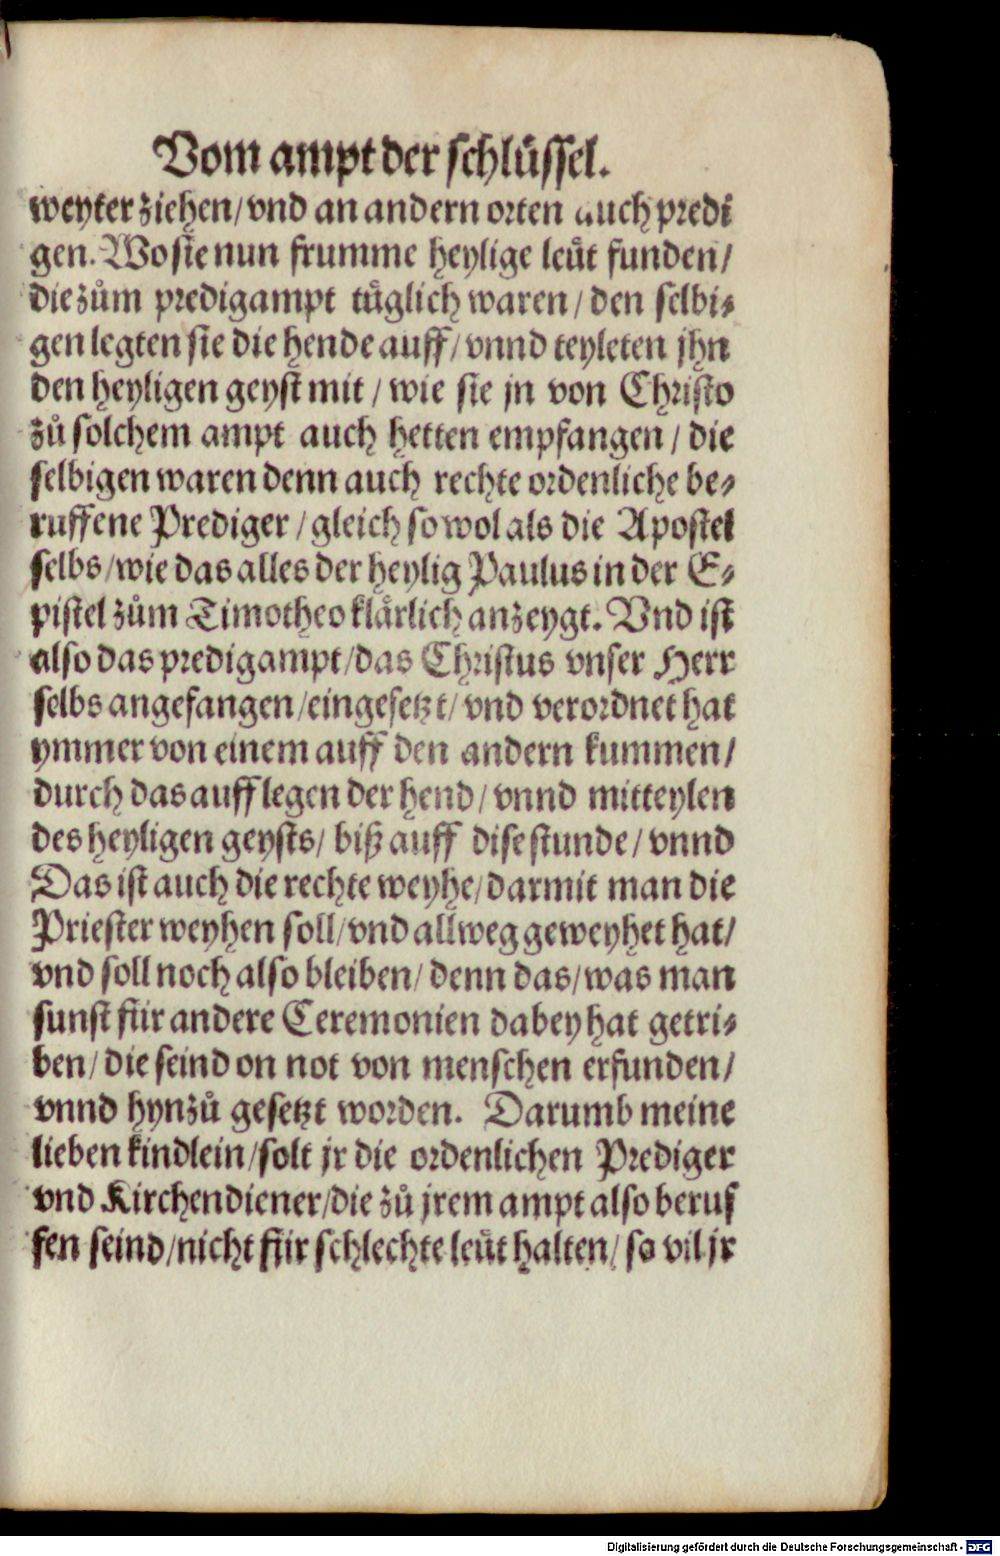 Vom ampt der schlüssel.
weyter ziehen/ vnd an andern orten auch predi
gen. Wo sie nun frumme heylige leüt funden/
die zům predigampt tüglich waren/ den selbi-
gen legten sie die hende auff/ vnnd teyleten jhn
den heyligen geyst mit/ wie sie jn von Christo
zů solchem ampt auch hetten empfangen/ die
selbigen waren denn auch rechte ordenliche be-
ruffene Prediger/ gleich so wol als die Apostel
selbs/ wie das alles der heylig Paulus in der E-
pistel zům Timotheo klärlich anzeygt. Vnd ist
also das predigampt/ das Christus vnser Herr
selbs angefangen/ eingesetzt/ vnd verordnet hat
ymmer von einem auff den andern kummen/
durch das auff legen der hend/ vnnd mitteylen
des heyligen geysts/ biß auff dise stunde/ vnnd
Das ist auch die rechte weyhe/ darmit man die
Priester weyhen soll/ vnd allweg geweyhet hat/
vnd soll noch also bleiben/ denn das/ was man
sunst für andere Ceremonien dabey hat getri-
ben/ die seind on not von menschen erfunden/
vnnd hynzů gesetzt worden. Darumb meine
lieben kindlein/ solt jr die ordenlichen Prediger
vnd Kirchendiener/ die zů jrem ampt also beruf
fen seind/ nicht für schlechte leüt halten/ so vil jr
Digitalisierung gefördert durch die Deutsche Forschungsgemeinschaft - DFG